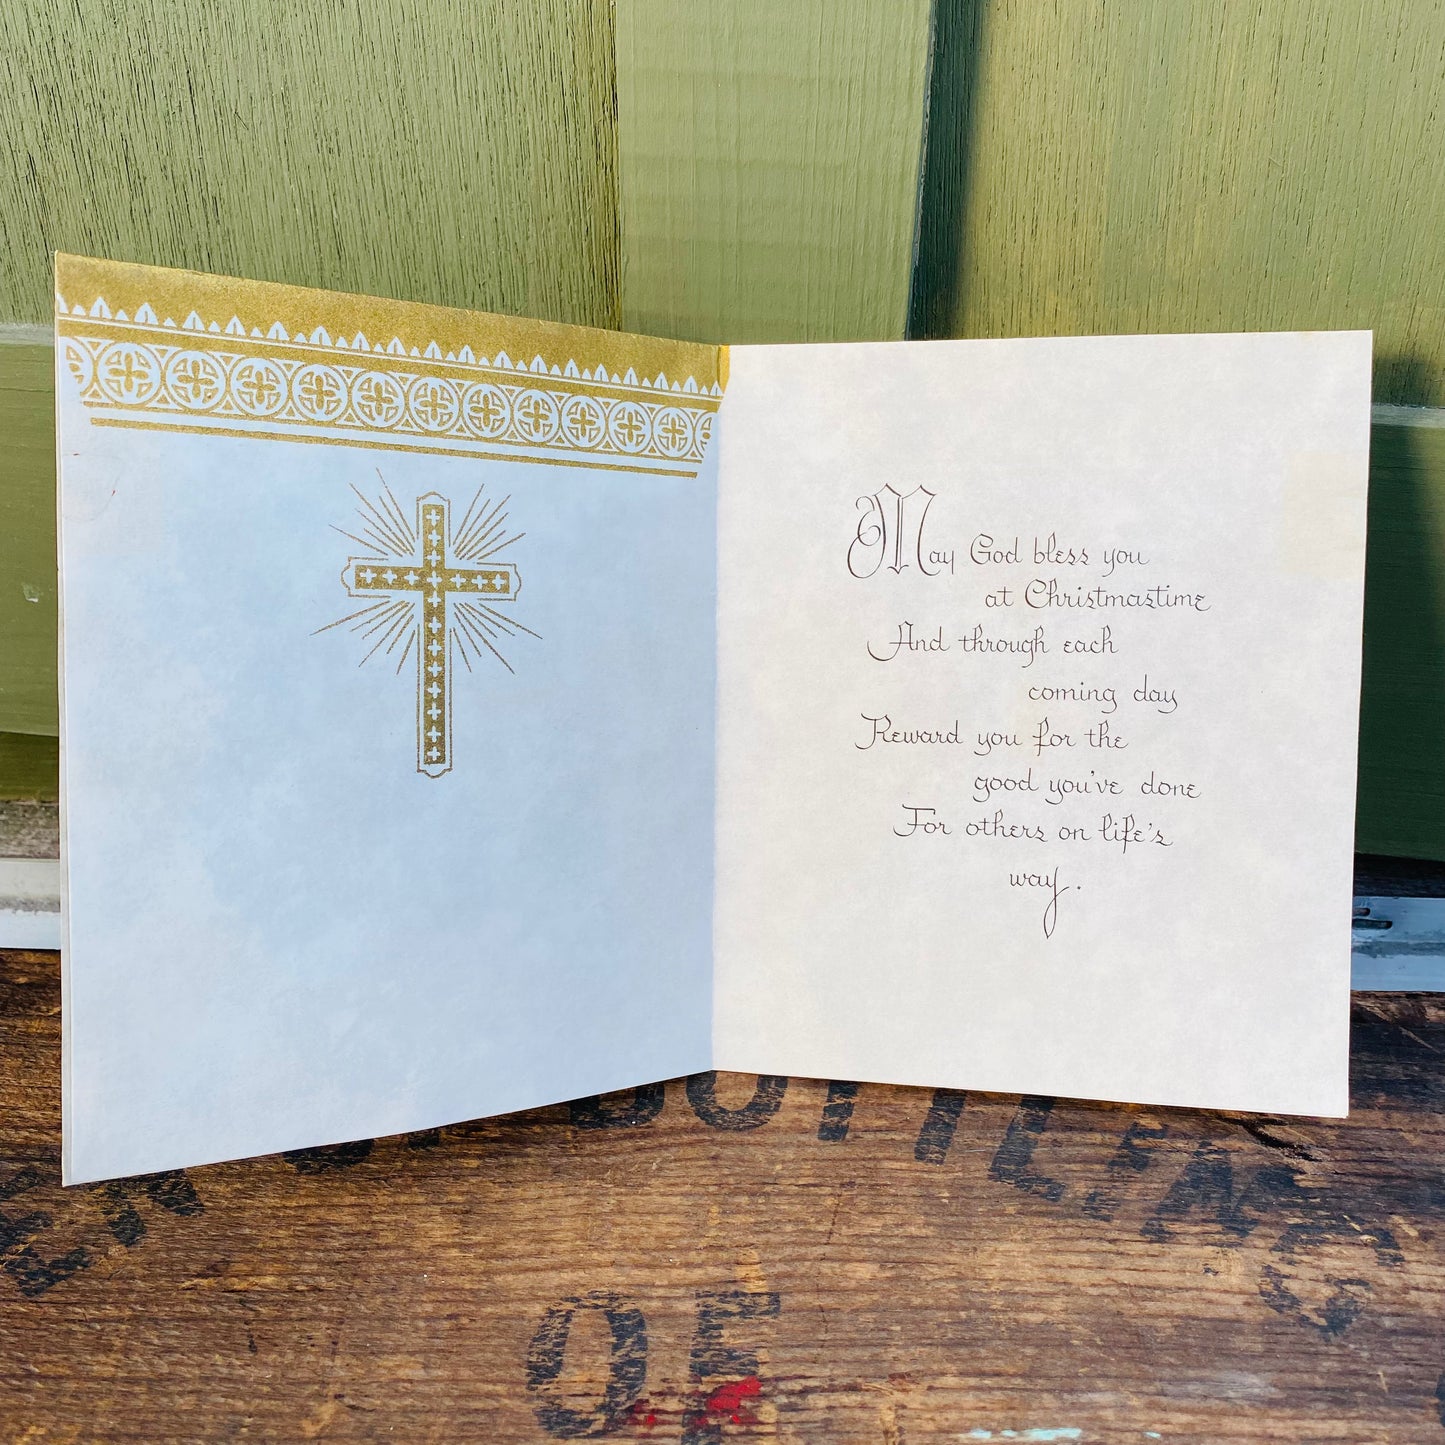 May God bless you
at Christmastime
And through each
coming day
Reward you for the
good you've done
For others on life's
way.
OF